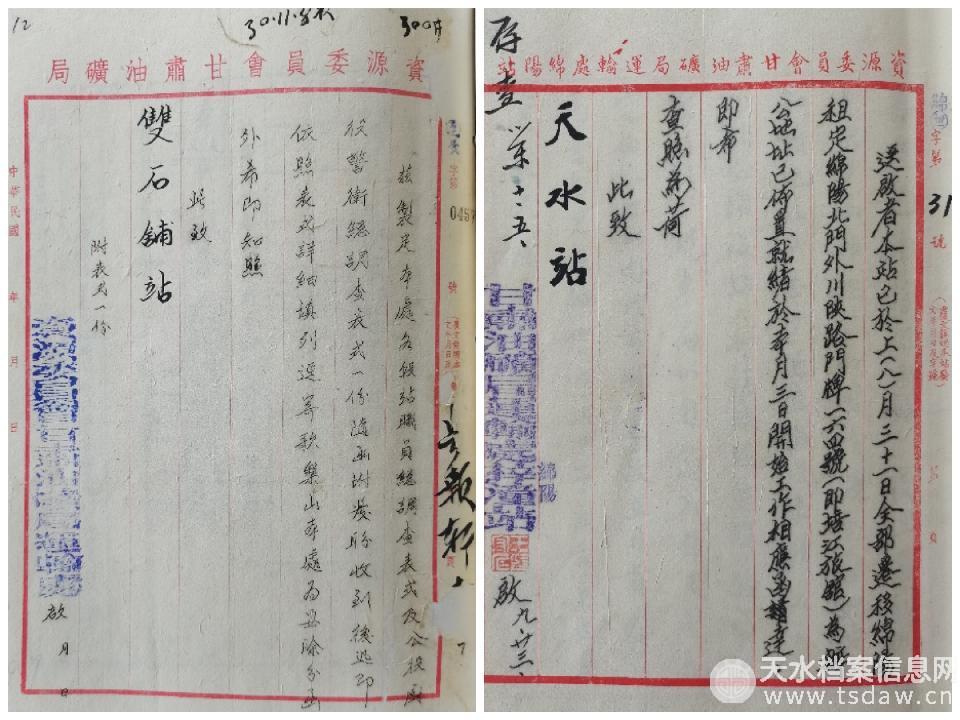 12
30.11.
300
資源委員會甘肅油礦局
字第
0457
號
茲製定本處各級站職員總調查表式及公役廚
役警衛總調查表式一份隨函附發盼收到後迅即
依照表式詳細填列逕寄歌樂山本處為要除分函
外希即知照
此致
雙石鋪站
附表式一份
啟 月 日
中華民國 年 月 日
資源委員會甘肅油礦局運輸處綿陽站
字第
31
號
逕啟者本站已於上(八)月三十一日全部遷移綿陽
租定綿陽北門外川陝路門牌一六四號(即涪江旅館)為
站址已佈置就緒於本月三日開始工作相應函請達
即希
查照為荷
此致
天水站
存查
十.五.
綿陽
啟 九.廿三.
天水档案信息网
www.tsdaw.cn